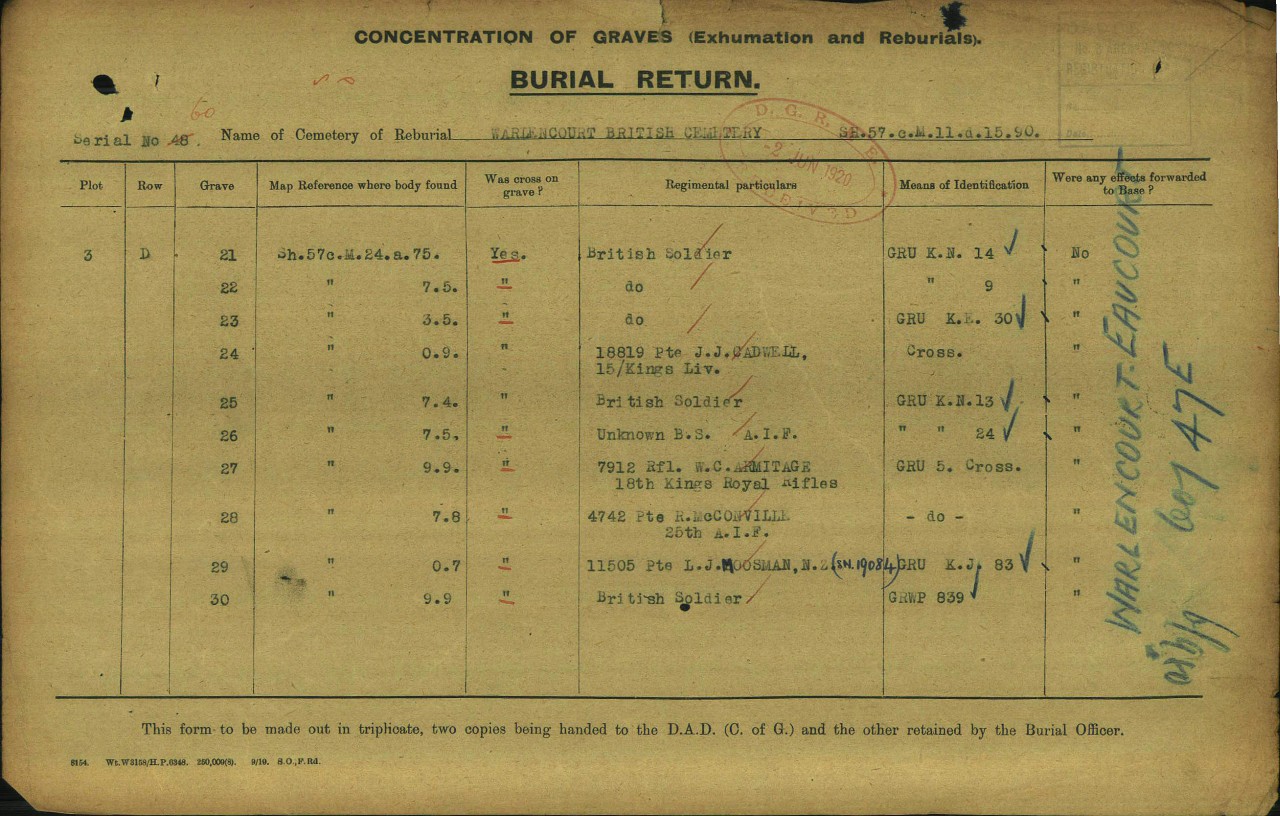 CONCENTRATION OF GRAVES (Exhumation and Reburials).
BURIAL RETURN.
60
Serial No 48. Name of Cemetery of Reburial WARLENCOURT BRITISH CEMETERY SH.57.c.M.11.d.15.90.
D. G. R. & E.
-2 JUN 1920
Plot Row Grave Map Reference where body found Was cross on grave? Regimental particulars Means of Identification Were any effects forwarded to Base?
3 D 21 Sh.57c.M.24.a.75. Yes. British Soldier GRU K.N. 14 No
22 " 7.5. " do " 9 "
23 " 3.5. " do GRU K.E. 30 "
24 " 0.9. " 18819 Pte J.J.CADWELL, Cross. "
15/Kings Liv.
25 " 7.4. British Soldier GRU K.N.13 "
26 " 7.5. " Unknown B.S. A.I.F. " " 24 "
27 " 9.9. " 7912 Rfl. W.C.ARMITAGE GRU 5. Cross. "
18th Kings Royal Rifles
28 " 7.8 " 4742 Pte R.McCONVILLE - do - "
25th A.I.F.
29 " 0.7 " 11505 Pte L.J.MOOSMAN, N.Z. (SN.19084) GRU K.J. 83 "
30 " 9.9 " British Soldier GRWP 839 "
WARLENCOURT-EAUCOURT
47E
This form to be made out in triplicate, two copies being handed to the D.A.D. (C. of G.) and the other retained by the Burial Officer.
8154. Wt.W3158/H.P.6348. 250,000(8). 9/19. S.O.,F.Rd.